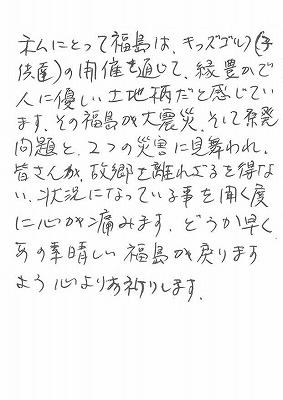 私にとって福島は、キッズゴルフ(子
供達)の開催を通じて、緑豊かで
人に優しい土地柄だと感じてい
ます。その福島が大震災、そして原発
問題と、2つの災害に見舞われ、
皆さんが、故郷を離れざるを得な
い、状況になっている事を聞く度
に心が痛みます。どうか早く
あの素晴しい福島が戻ります
よう心よりお祈りします。